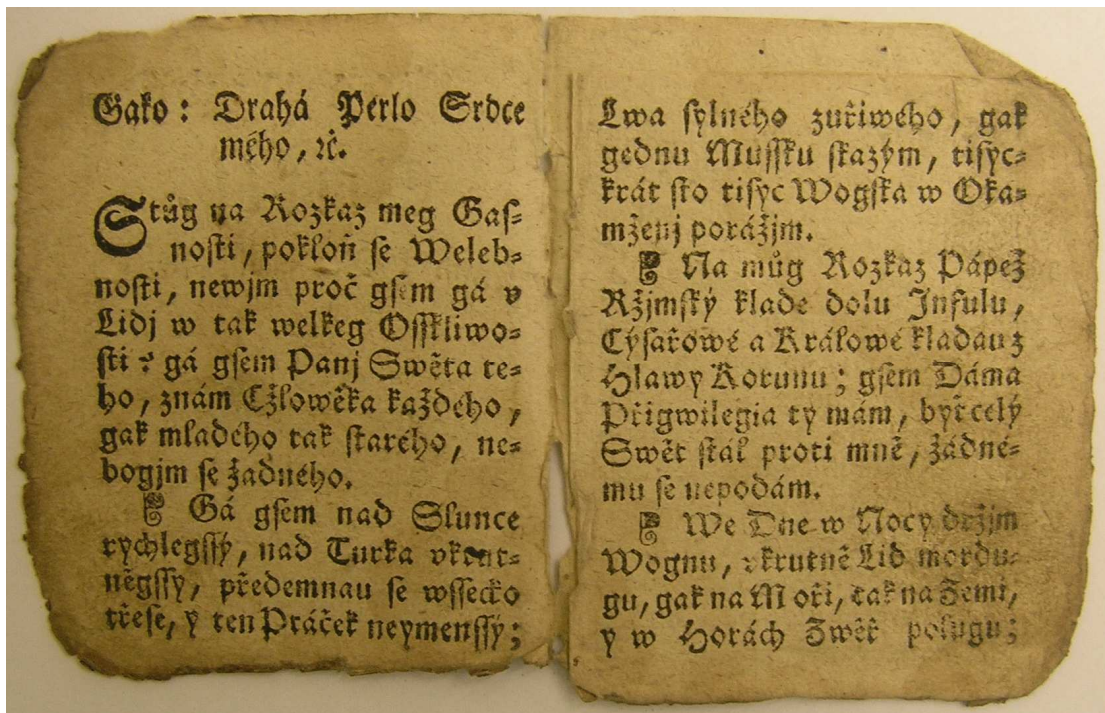 Gako: Drahá Perlo Srdce
mého, ꝛc.
Stůg na Rozkaz meg Gaſ⸗
noſti, pokloň ſe Weleb⸗
noſti, newjm proč gſem gá v
Lidj w tak welkeg Oſſkliwo⸗
ſti? gá gſem Panj Swěta te⸗
ho, znám Cžlowěka každého,
gak mladého tak ſtarého, ne⸗
bogjm ſe žadného.
Gá gſem nad Slunce
rychlegſſý, nad Turka vkrut⸗
něgſſy, předemnau ſe wſſecko
třeſe, y ten Ptáček neymenſſý;
Lwa ſylného zuřiwého, gak
gednu Muſſku ſkazým, tiſyc⸗
krát ſto tiſyc Wogſka w Oka⸗
mženj porážjm.
Na můg Rozkaz Pápež
Ržjmſký klade dolu Jnfulu,
Cýſařowé a Králowé kladau z
Hlawy Korunu; gſem Dáma
Přigwilegia ty mám, byť celý
Swět ſtál proti mně, žádné⸗
mu ſe nepodám.
We Dne w Nocy držjm
Wognu, vkrutně Lid mordu⸗
gu, gak na Moři, tak na Zemi,
y w Horách Zwěř poſugu;